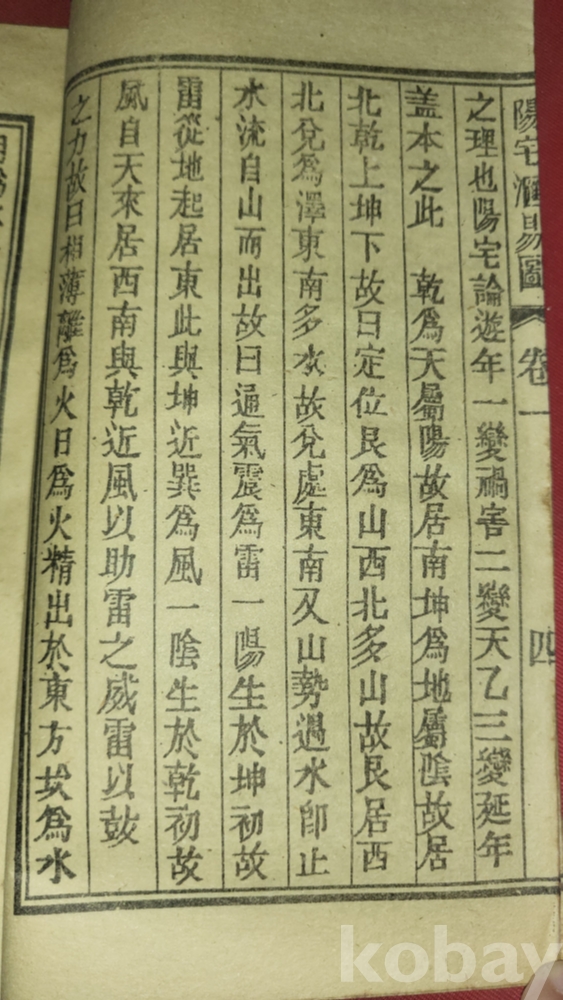 陽宅滙易圖 卷一 四
之理也陽宅論遊年一變禍害二變天乙三變延年
盖本之此 乾為天屬陽故居南坤為地屬陰故居
北乾上坤下故曰定位艮為山西北多山故艮居西
北兌為澤東南多水故兌處東南又山勢過水卽止
水流自山而出故曰通氣震為雷一陽生於坤初故
雷從地起居東此與坤近巽為風一陰生於乾初故
風自天來居西南與乾近風以助雷之威雷以鼓
之力故曰相薄離為火日為火精出於東方坎為水
kobay